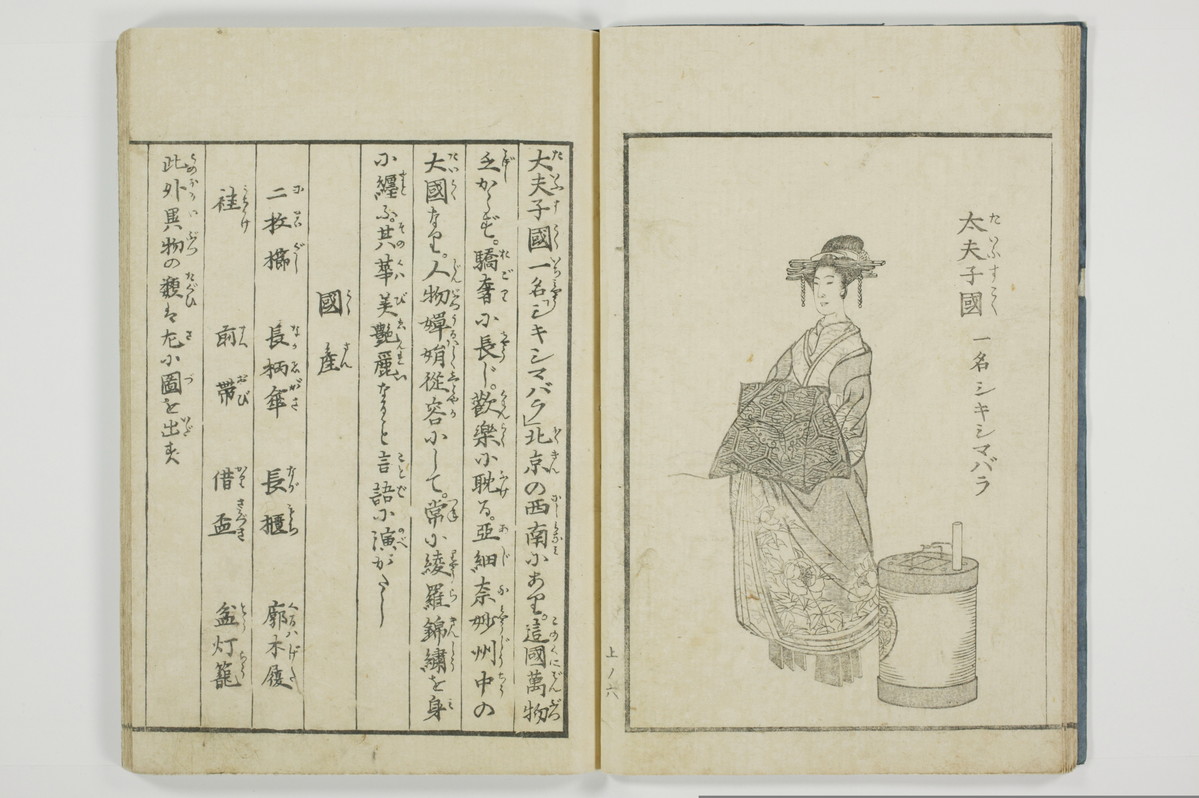 太夫子國 一名シキシマバラ
たいふすこく
上ノ六
大夫子國一名「シキシマバラ」北京の西南にあり。這國萬物
乏からず。驕奢に長じ。歡樂に耽る。亞細奈妙州中の
大國なり。人物嬋娟從容にして。常に綾羅錦繍を身
に纒ふ。其華美艷麗なること言語に演がたし
國産
二枚櫛 長柄傘 長櫃 廓木履
袿 前帯 借盃 盆灯籠
此外異物の類は左に圖を出す